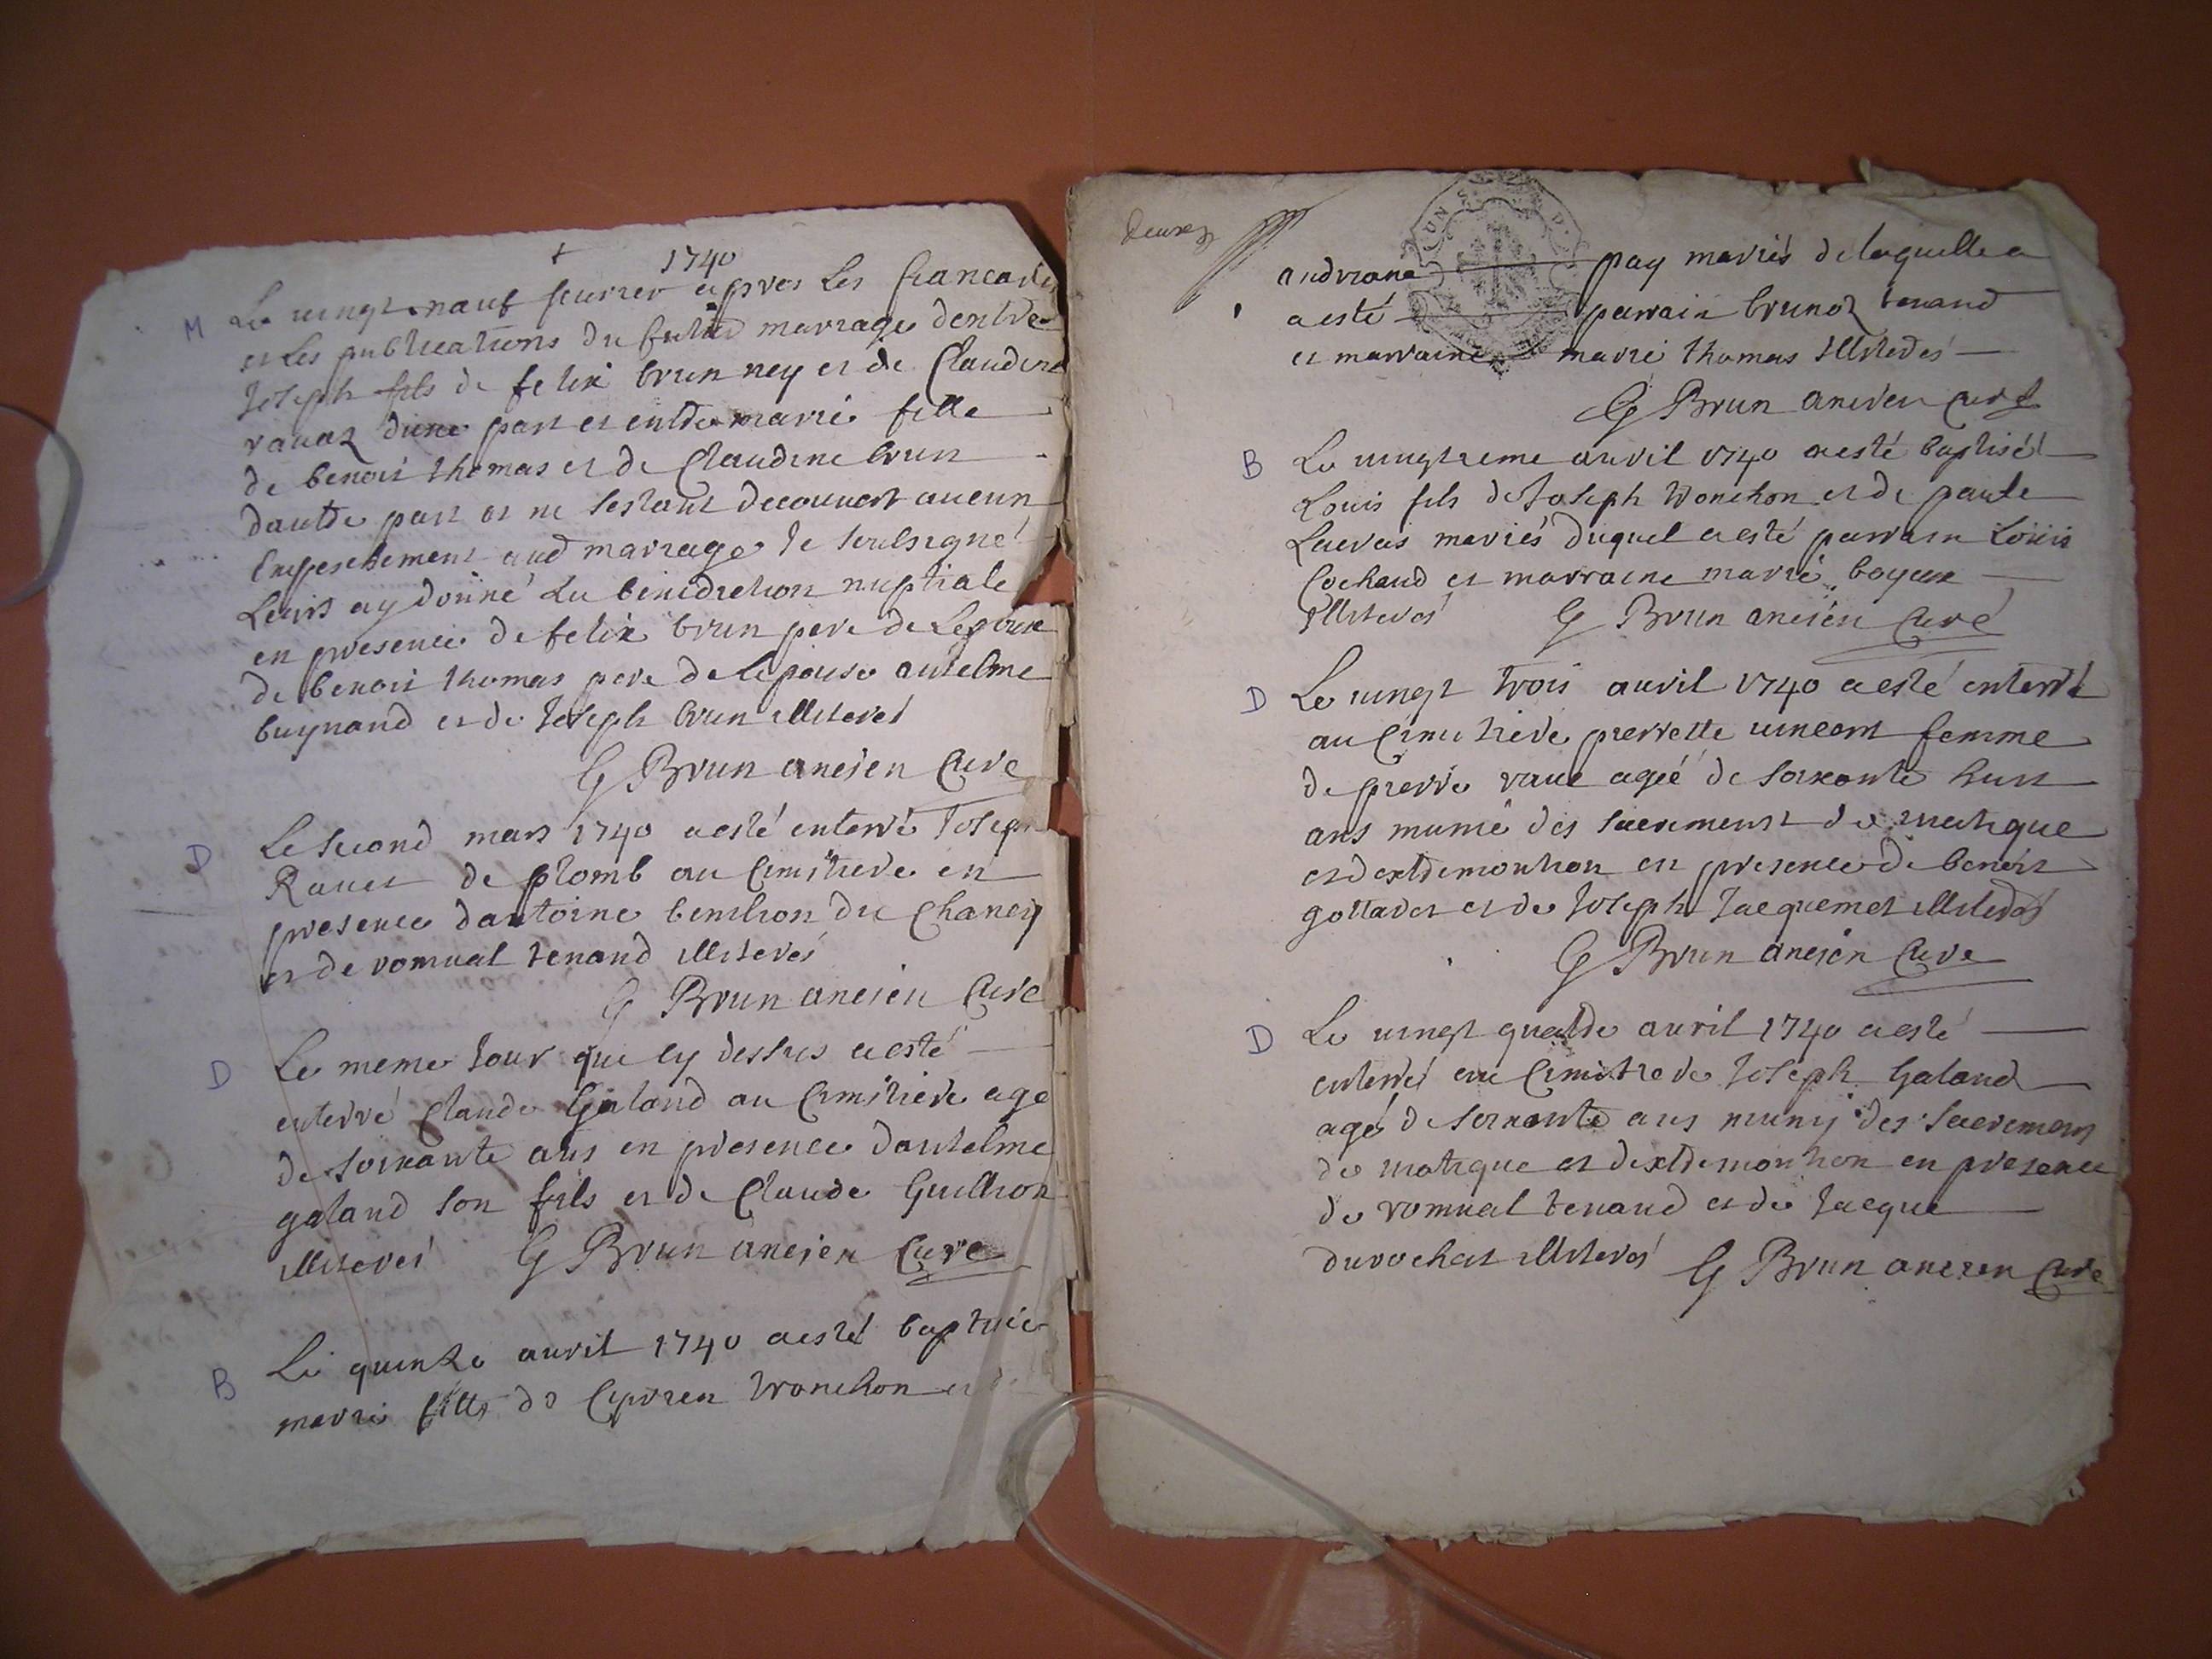 + 1740
M Le vingt nauf feuvrier apres les fiancailles
et les publications du futur mariage dentre
Joseph fils de felix brun ney et de Claudine
ravaz dune part et entre marie fille
de benoit thomas et de Claudine brun
dautre part et ne sestant decouvert aucun
Empeschement aud mariage Je soubsigné
Leurs ay donné La benediction nuptiale
en presence de felix brun pere de Lepoux
de benoit thomas pere de Lepouse antelme
buynand et de Joseph brun illiteres
G Brun ancien Curé
D Le second mars 1740 a esté enterré Joseph
Ravet de plomb au Cimitiere en
presence dantoine benilion du Chaney
et de romual tenand illiterés
G Brun ancien Curé
D Le meme Jour que cy dessus a esté
enterré Claude Galand au Cimitiere age
de soixante ans en presence dantelme
galand son fils et de Claude Guillion
illiterés G Brun ancien Curé
B Le quinze avril 1740 a esté baptisée
marie fille de Ciprien tronchon et de
deuxe
andriane pay mariés de laquelle a
a esté parrain brunoz tenand
et marraine marie thomas illiterés
G Brun ancien curé
B Le vingtieme avril 1740 a esté baptisé
Louis fils de Joseph tronchon et de paule
Luevas mariés duquel a esté parrain Loüis
Cochand et marraine marie boyeux
illiterés G Brun ancien Curé
D Le vingt trois avril 1740 a esté enterré
au Cimitiere pierrette vincent femme
de pierre rave ageé de soixante huit
ans munie des sacrements de viatique
et dextremontion en presence de benoit
gottaret et de Joseph Jacquemet illiterés
G Brun ancien Cure
D Le vingt quatre avril 1740 a esté
enterré au Cimitiere Joseph Galand
agé de soixante ans muny des sacremens
de viatique et dextremontion en presence
de romual tenand et de Jacque
durochat illiterés G Brun ancien Curé